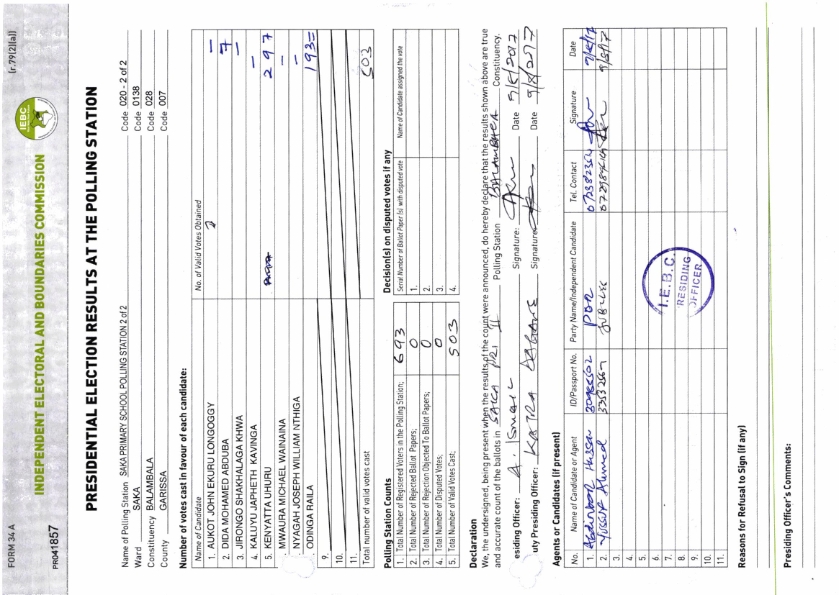 FORM 34 A
(r.79(2)(a))
INDEPENDENT ELECTORAL AND BOUNDARIES COMMISSION
IEBC
PR041857
PRESIDENTIAL ELECTION RESULTS AT THE POLLING STATION
Name of Polling Station SAKA PRIMARY SCHOOL POLLING STATION 2 of 2 Code 020 - 2 of 2
Ward SAKA Code 0138
Constituency BALAMBALA Code 028
County GARISSA Code 007
Number of votes cast in favour of each candidate:
Name of Candidate No. of Valid Votes Obtained
1. AUKOT JOHN EKURU LONGOGGY –
2. DIDA MOHAMED ABDUBA 7
3. JIRONGO SHAKHALAGA KHWA –
4. KALUYU JAPHETH KAVINGA –
5. KENYATTA UHURU 297
MWAURA MICHAEL WAINAINA –
NYAGAH JOSEPH WILLIAM NTHIGA –
ODINGA RAILA 193=
9.
10.
11.
Total number of valid votes cast 503
Polling Station Counts
1. Total Number of Registered Voters in the Polling Station; 693
2. Total Number of Rejected Ballot Papers; 0
3. Total Number of Rejection Objected To Ballot Papers; 0
4. Total Number of Disputed Votes; 0
5. Total Number of Valid Votes Cast; 503
Decision(s) on disputed votes if any
Serial Number of Ballot Paper (s) with disputed vote Name of Candidate assigned the vote
1.
2.
3.
4.
Declaration
We, the undersigned, being present when the results of the count were announced, do hereby declare that the results shown above are true
and accurate count of the ballots in SAKA PRI II Polling Station BALAMBALA Constituency.
esiding Officer: A. Ismail Signature: Date 9/8/2017
uty Presiding Officer: Signature: Date 9/8/2017
Agents or Candidates (if present)
No. Name of Candidate or Agent ID/Passport No. Party Name/Independent Candidate Tel. Contact Signature Date
1.
2. Yussuf Ahmed JUBILEE
3.
4.
5.
6.
7.
8.
9.
10.
11.
I.E.B.C.
RESIDING
OFFICER
Reasons for Refusal to Sign (if any)
Presiding Officer's Comments: